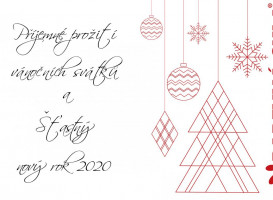 Příjemné prožití
vánočních svátků
a
Šťastný
nový rok 2020